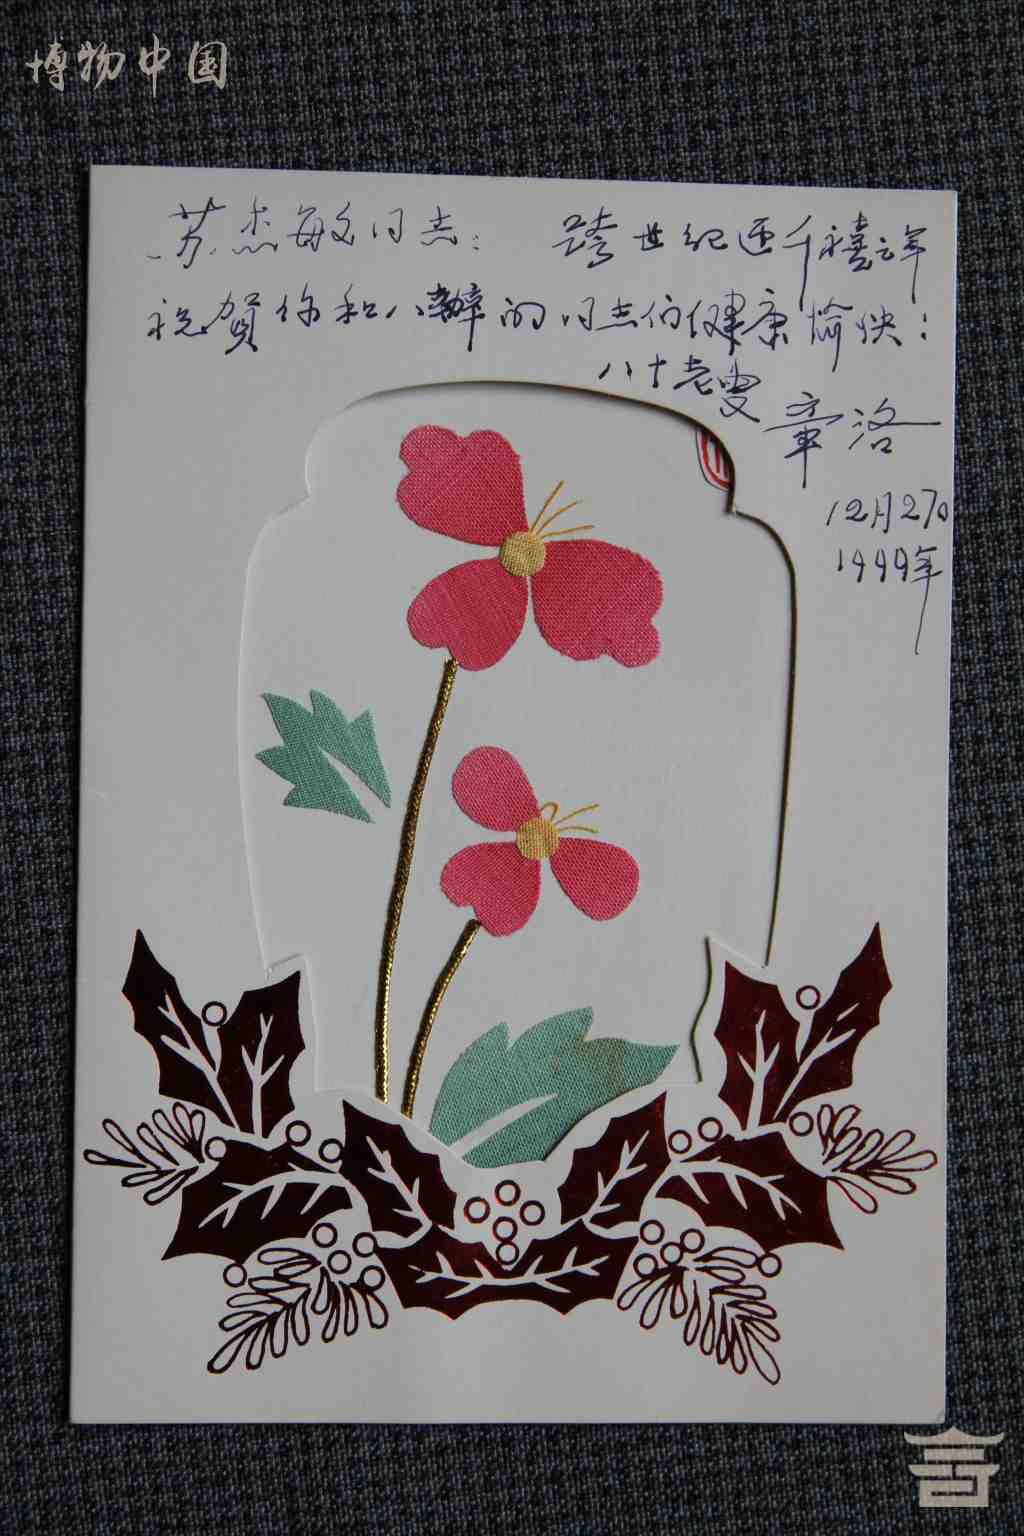 博物中国
苏杰敏同志： 跨世纪迎千禧之年
祝贺你和八辦的同志们健康愉快：
八十老叟
章洛
12月27日
1999年